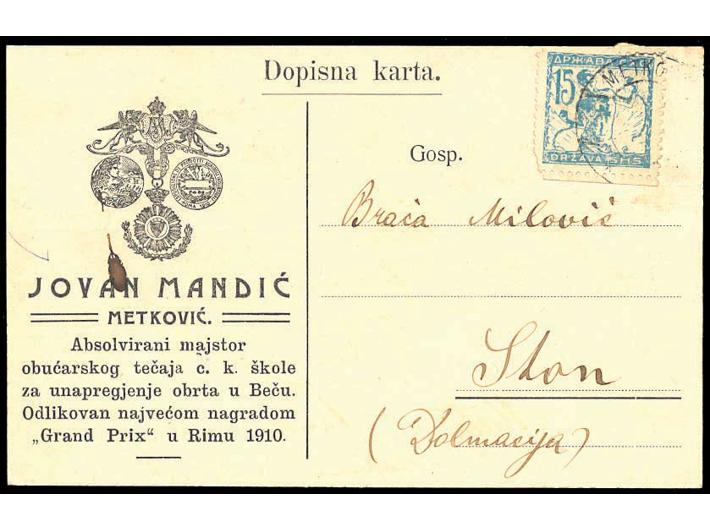 Dopisna karta.
ДРЖАВА СХС
15
DRŽAVA SHS
METKO
Gosp.
Braća Milović
Ston
(Dolmacija)
JOVAN MANDIĆ
METKOVIĆ.
Absolvirani majstor
obućarskog tečaja c. k. škole
za unapregjenje obrta u Beču.
Odlikovan najvećom nagradom
„Grand Prix“ u Rimu 1910.